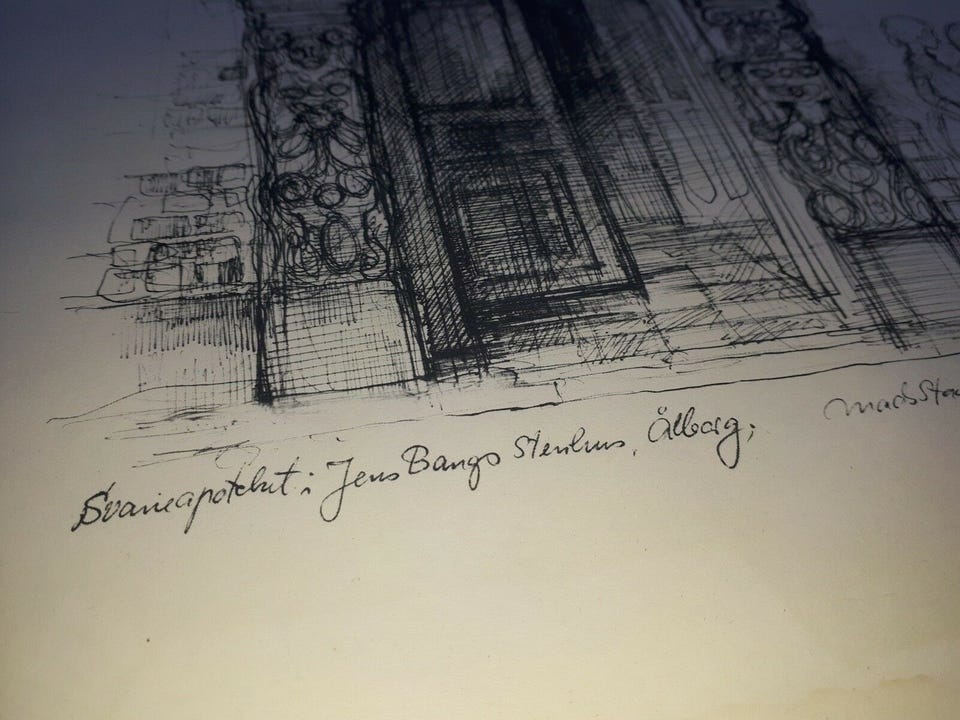 Svaneapoteket i Jens Bangs Stenhus, Ålborg;